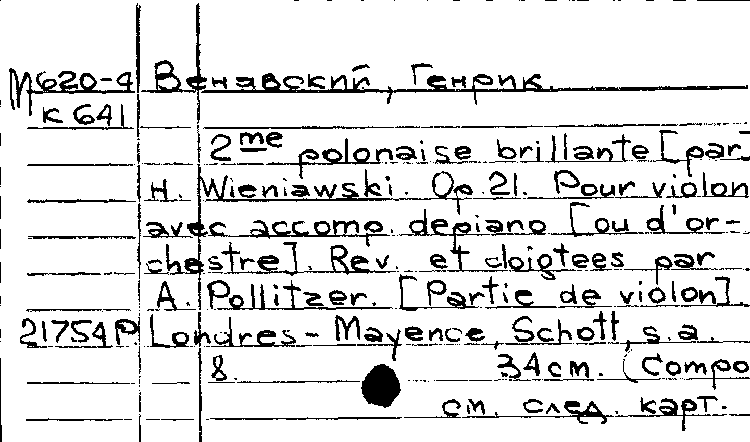 М620-4 Венявский, Генрик.
К 641
2me polonaise brillante [par]
H. Wieniawski. Op. 21. Pour violon
avec accomp. de piano [ou d'or-
chestre]. Rev. et doigtees par
A. Pollitzer. [Partie de violon].
21754Р Londres - Mayence, Schott, s.a.
8. 34 cm. (Compo
см. след. карт.